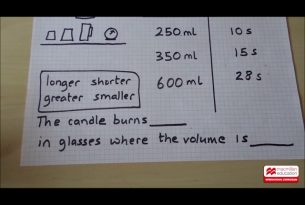 250 ml 10 s
350 ml 15 s
600 ml 28 s
longer shorter
greater smaller
The candle burns ____
in glasses where the volume is ____
macmillan
education